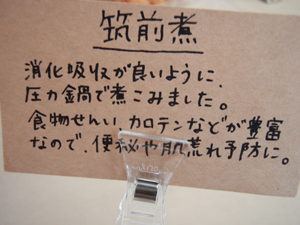 筑前煮
消化吸収が良いように、
圧力鍋で煮こみました。
食物せんい、カロテンなどが豊富
なので、便秘や肌荒れ予防に。